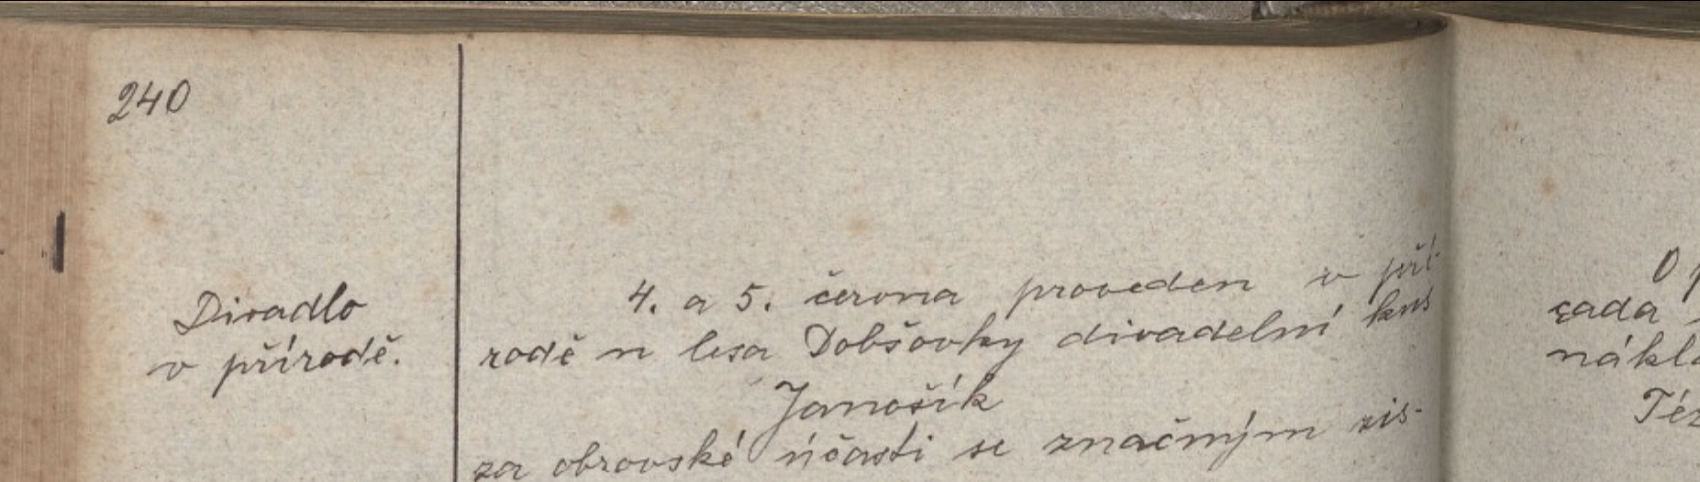 240
Divadlo
v přírodě.
4. a 5. června proveden v pří-
rodě u lesa Dobšovky divadelní kus
Janošík
za obrovské účasti se značným zis-
O p
sada
nákla
Též